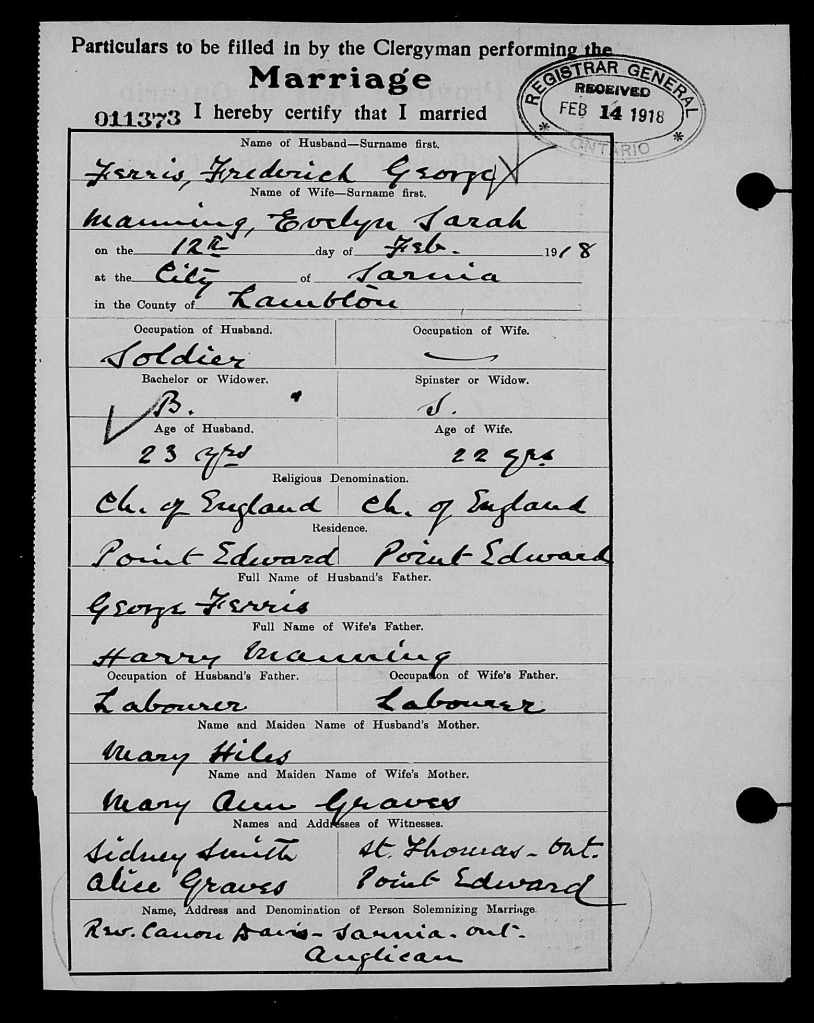 Particulars to be filled in by the Clergyman performing the
Marriage
REGISTRAR GENERAL
RECEIVED
FEB 14 1918
* ONTARIO *
011373 I hereby certify that I married
Name of Husband—Surname first.
Ferris, Frederick George
Name of Wife—Surname first.
Manning, Evelyn Sarah
on the 12th day of Feb. 1918
at the City of Sarnia
in the County of Lambton
Occupation of Husband. Occupation of Wife.
Soldier —
Bachelor or Widower. Spinster or Widow.
B. S.
Age of Husband. Age of Wife.
23 yrs 22 yrs
Religious Denomination.
Ch. of England Ch. of England
Residence.
Point Edward Point Edward
Full Name of Husband's Father.
George Ferris
Full Name of Wife's Father.
Harry Manning
Occupation of Husband's Father. Occupation of Wife's Father.
Labourer Labourer
Name and Maiden Name of Husband's Mother.
Mary Hiles
Name and Maiden Name of Wife's Mother.
Mary Ann Graves
Names and Addresses of Witnesses.
Sidney Smith St. Thomas - Ont.
Alice Graves Point Edward
Name, Address and Denomination of Person Solemnizing Marriage
Rev. Canon Davis - Sarnia - Ont.
Anglican